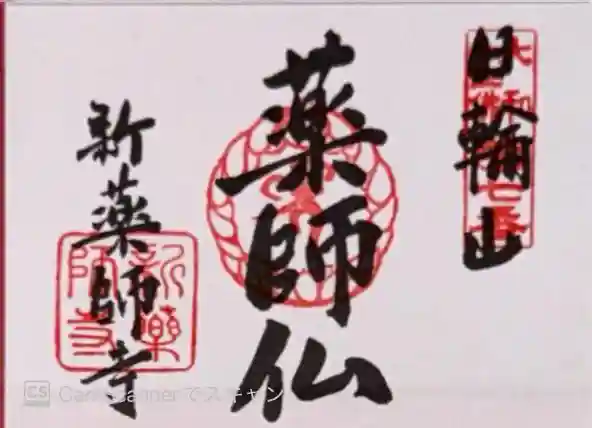 日輪山
薬師仏
新薬師寺
新薬師寺
CS CamScannerでスキャン